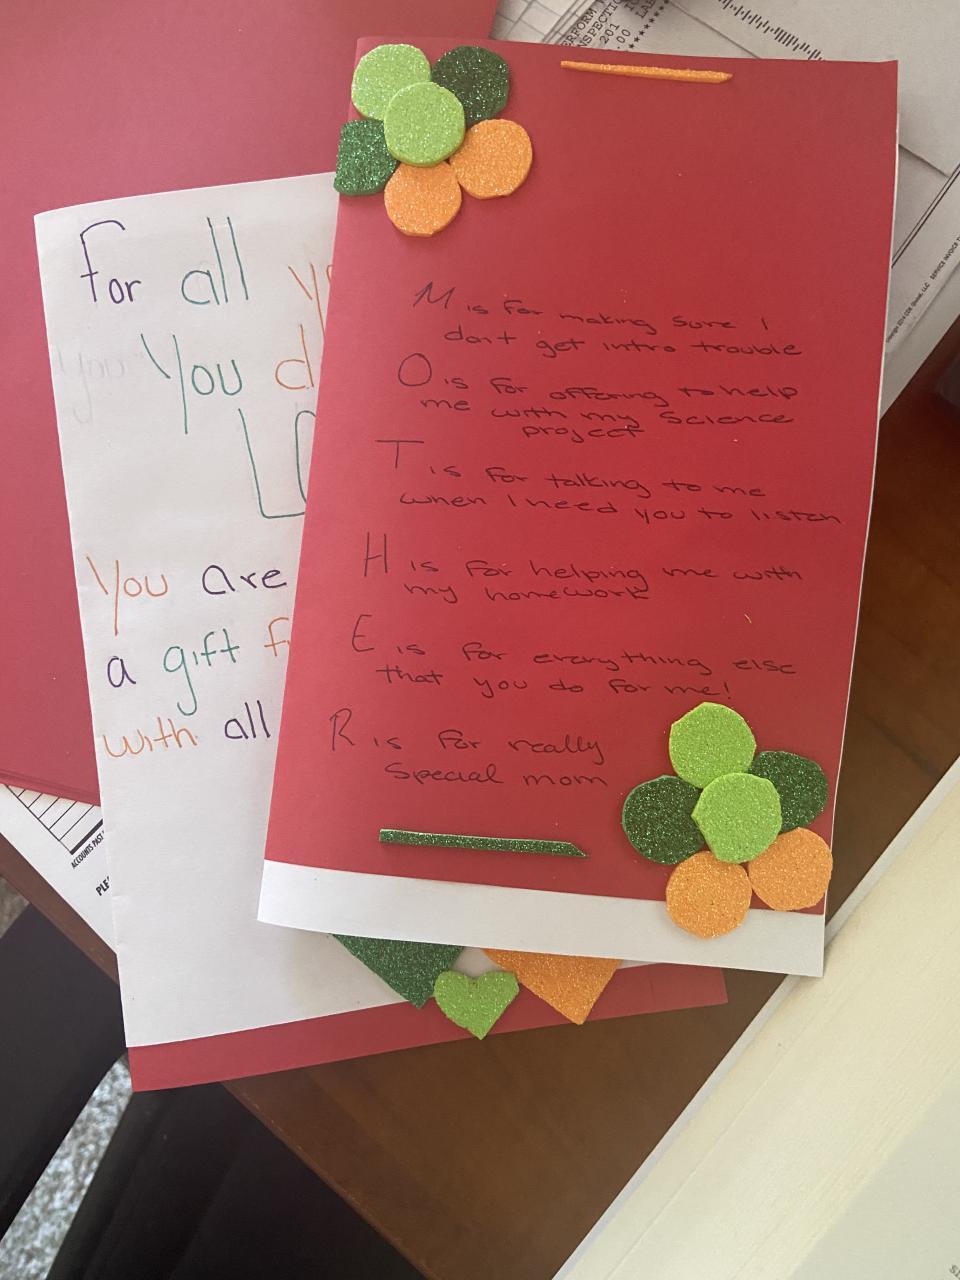 M is for making sure I
don't get intro trouble
O is for offering to help
me with my Science
project
T is for talking to me
when I need you to listen
H is for helping me with
my homework
E is for everything else
that you do for me!
R is for really
Special mom
For all
You d
You are
a gift f
with all
PERFORM
INSPECTIO
201
.00 LAB
ACCOUNTS PAST
PLE